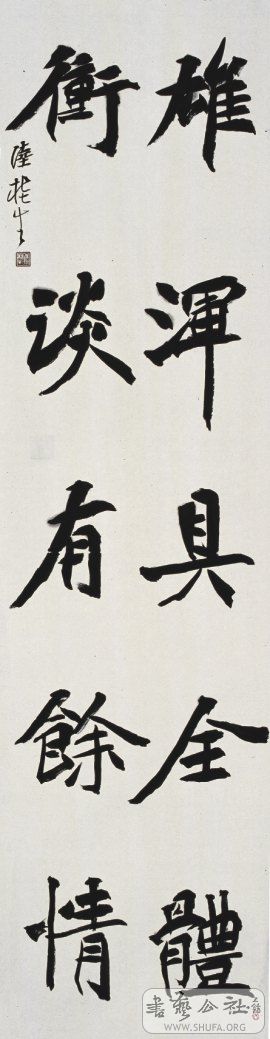 雄渾具全體
衝淡有餘情
書藝公社
WWW.SHUFA.ORG